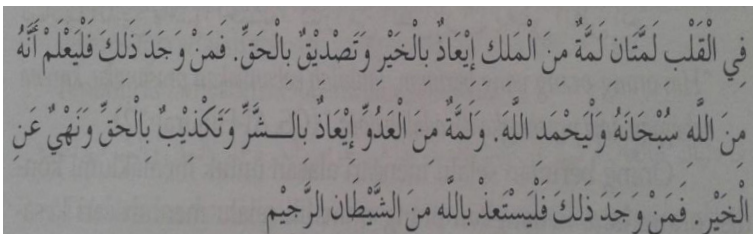 فِي الْقَلْبِ لَمَّتَانِ لَمَّةٌ مِنَ الْمَلَكِ إِيْعَاذٌ بِالْخَيْرِ وَتَصْدِيْقٌ بِالْحَقِّ. فَمَنْ وَجَدَ ذَلِكَ فَلْيَعْلَمْ أَنَّهُ
مِنَ اللَّهِ سُبْحَانَهُ وَلْيَحْمَدِ اللَّهَ. وَلَمَّةٌ مِنَ الْعَدُوِّ إِيْعَاذٌ بِالشَّرِّ وَتَكْذِيْبٌ بِالْحَقِّ وَنَهْيٌ عَنِ
الْخَيْرِ. فَمَنْ وَجَدَ ذَلِكَ فَلْيَسْتَعِذْ بِاللَّهِ مِنَ الشَّيْطَانِ الرَّجِيْمِ